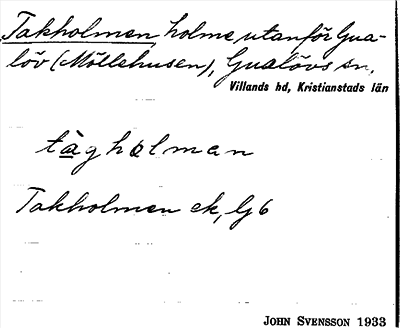 Takholmen, holme utanför Gua-
löv (Möllehusen), Gualövs sn,
Villands hd, Kristianstads län
tàgholman
Takholmen ek, Gb
JOHN SVENSSON 1933